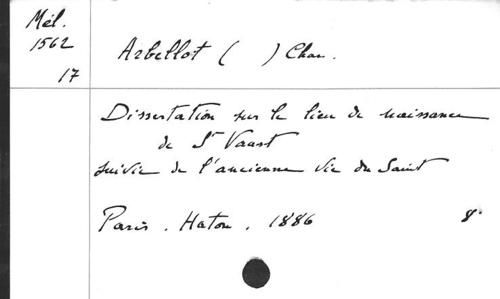 Mél.
1562
17
Arbellot ( ) Chan.
Dissertation sur le lieu de naissance
de St Vaast
suivie de l'ancienne vie du Saint
Paris. Haton, 1886 8°